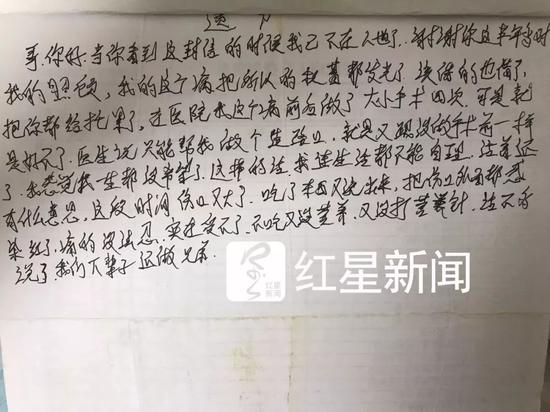 遗
哥.你好.当你看到这封信的时候我已不在人世了.谢谢你这半年多对
我的照顾,我的这个病把所以的积蓄都发光了该借的也借了,
把你都给拖累了,在医院我这个病前后做了大小手术四次,可是就
是好不了.医生说只能帮我做个造瘘口,就是又跟没做手术前一样
了.我感觉我一生都这单架了.这样的话.我连生活都不能自理.活着还
有什么意思.这段时间伤口又大了.吃了东西又 出来,把伤口 围都感
染红了.痛的没法忍,实在受不了.不吃又没营养.又没打营养针.活不
说了.我们下辈子还做兄弟.
红星新闻
红星
新闻